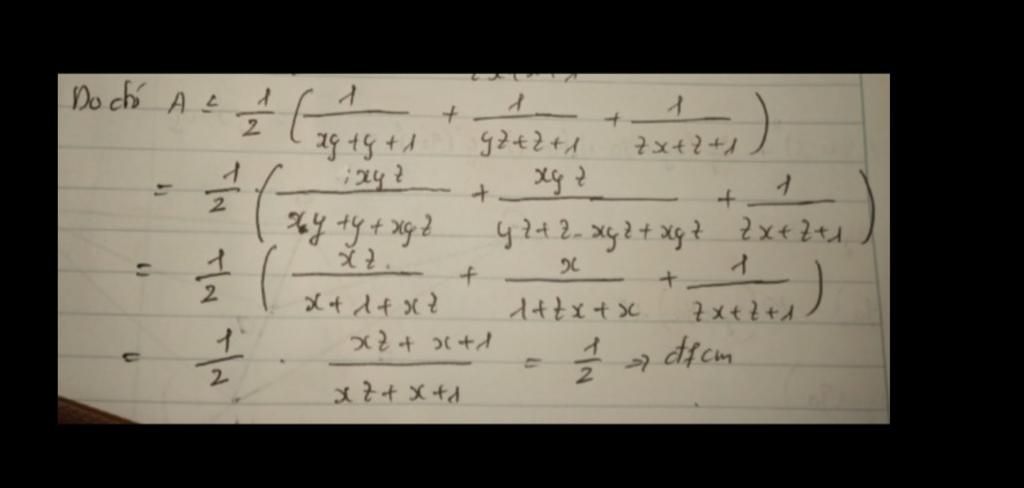 Do chó A ≤ 1/2 ( 1/(xy+y+1) + 1/(yz+z+1) + 1/(zx+z+1) )
= 1/2 . ( xyz/(xy+y+xyz) + xyz/(yz+z-xyz+xyz) + 1/(zx+z+1) )
= 1/2 ( xz/(x+1+xz) + x/(1+zx+x) + 1/(zx+z+1) )
= 1/2 . (xz+x+1)/(xz+x+1) = 1/2 => đfcm